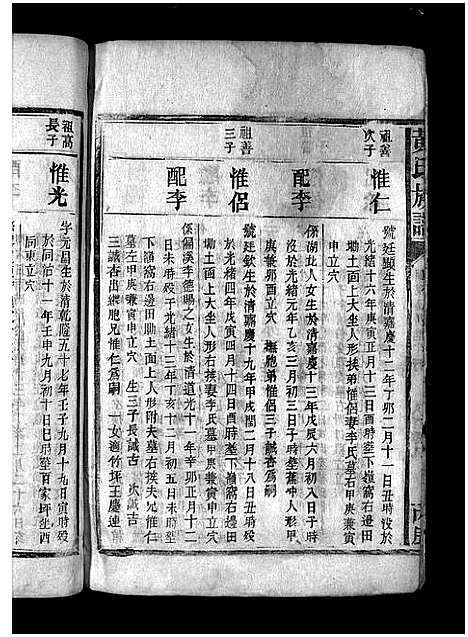 黃氏族譜
祖善
次子
惟仁
號廷顯生於清嘉慶十二年丁卯二月十一日丑時歿於
光緒十六年庚寅正月十三日酉時塟下嶺窩右邊田
坳土面上大坐人形挨弟惟侶妻李氏墓右甲庚兼寅
申立穴
配李
係湖北人女生於清嘉慶十三年戊辰六月初八日子時
歿於光緒元年乙亥三月初九日子時塟
人形甲
庚兼卯酉立穴 撫胞弟惟侶三子誠杏爲嗣
祖善
三子
惟侶
號廷欽生於清嘉慶十九年甲戌閏二月十八日丑時歿
於光緒四年戊寅四月十四日酉時塟下嶺窩右邊田
坳土面上大坐人形右挨妻李氏墓甲庚兼寅申立穴
配李
係爛溪李德賜之女生於清道光十一年辛卯正月十二
日未時歿于光緒十三年丁亥十二月初五日未時塟
下嶺窩右邊田坳土面上人形附夫墓右挨夫兄惟仁
墓左甲庚兼寅申立穴 生三子長誠古 次誠吉
三誠杏出繼胞兄惟仁爲嗣 一女適竹坪王慶連
祖高
長子
惟光
字元昌生於清乾隆五十七年壬子九月十九日寅時歿
於同治十一年壬申九月初十日巳時塟百家坪坐西
向東立穴